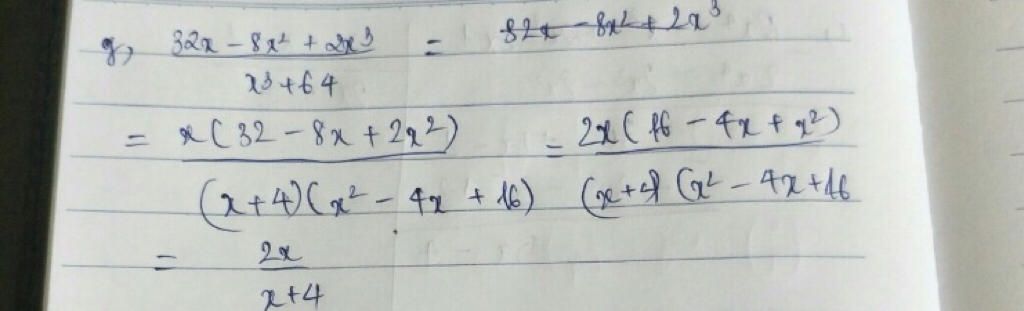 g, 32x - 8x² + 2x³ / x³ + 64 = 32x - 8x² + 2x³
= x(32 - 8x + 2x²) / (x+4)(x² - 4x + 16) = 2x(16 - 4x + x²) / (x+4)(x² - 4x + 16
= 2x / x+4